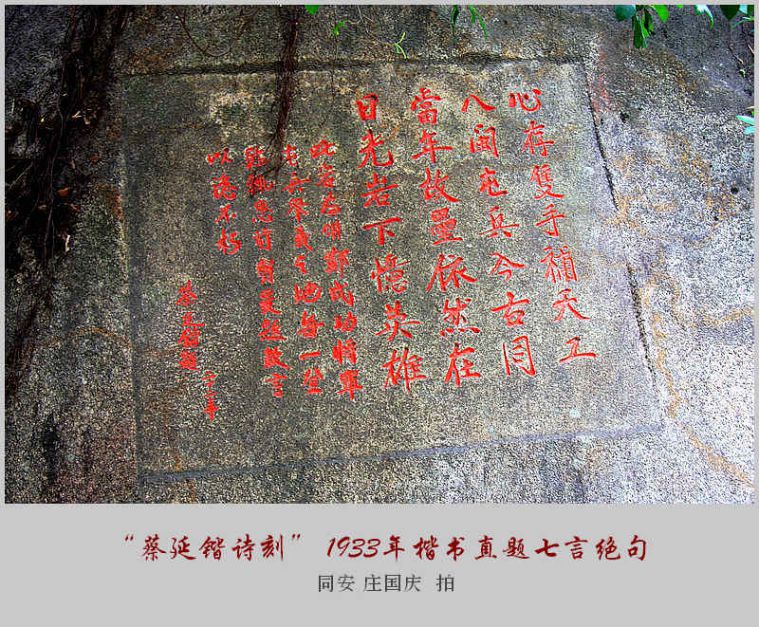 心存雙手補天工
八閩屯兵今古同
當年故壘依然在
日光岩下憶英雄
此 為明鄭成功將軍
屯兵舉義之地每一登
臨緬思前賢爰題數言
以誌不朽
蔡廷鍇題
二十二年
“蔡延锴诗刻” 1933年楷书直题七言绝句
同安 庄国庆 拍